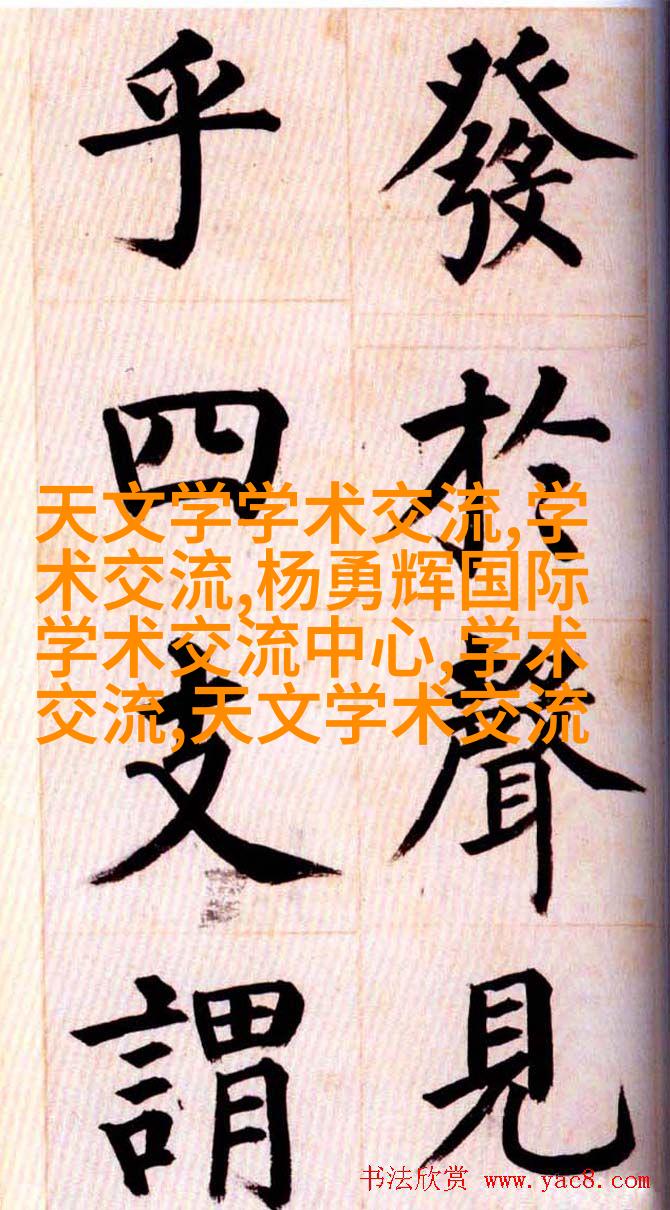 發於聲見
乎四支謂
天文学学术交流,学
术交流,杨勇辉国际
学术交流中心,学术
交流,天文学术交流
书法欣赏 www.yac8.com